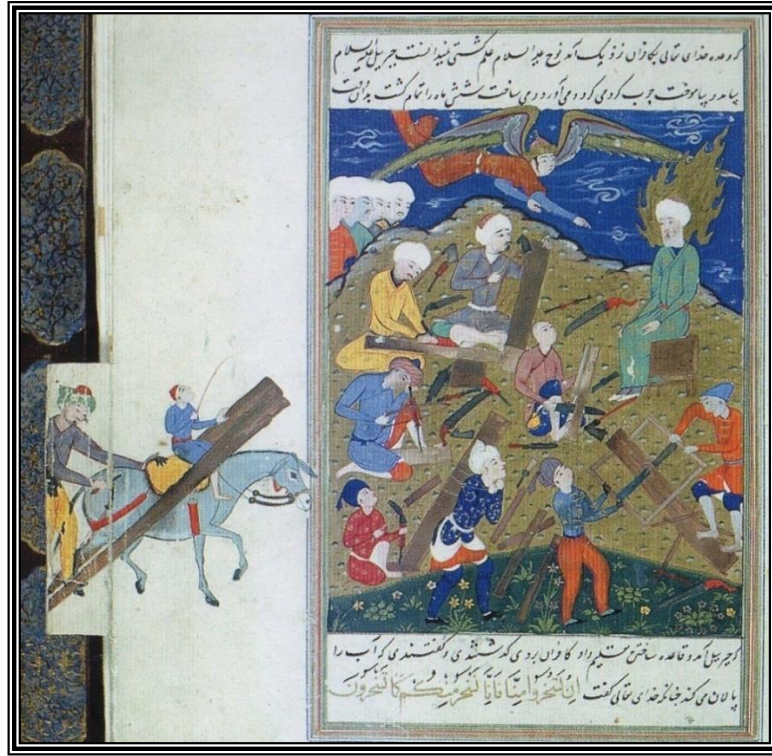 که وعده خدای تعالی بکافران نزدیک آمد نوح علیه السلام علم کشتی نمیدانست جبریل علیه السلام
بیامد و بیاموخت چوب کرد می کرد و می آورد و می ساخت شش ماه را تمام کشت بدانست
که جبریل آمد و قاعده ساختن تسلیم داد کافران بر وی گذشتندی و گفتندی که آب را
پالان می کند چنانکه خدای تعالی گفت اِنْ تَسْخَرُوا مِنَّا فَاِنَّا نَسْخَرُ مِنْكُمْ كَمَا تَسْخَرُونَ